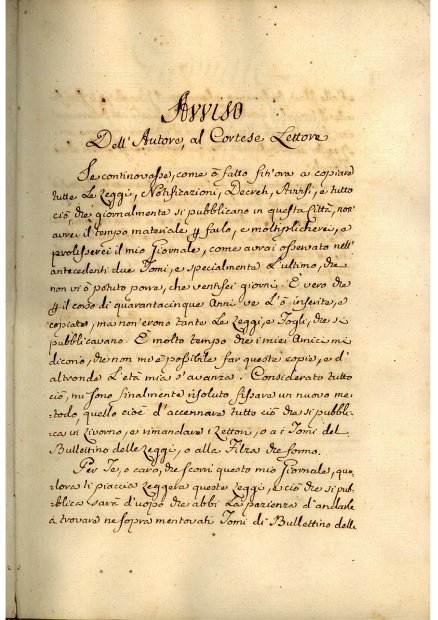 Avviso
Dell' Autore, al Cortese Lettore
Se continovasse, come ò fatto sin'ora a copiare
tutte Le Leggi, Notificazioni, Decreti, Avvisi, e tutto
ciò che giornalmente si pubblicano in questa Città, non
avrei il tempo materiale p farlo, e moltiplicherei, e
prolisserei il mio Giornale, come avrai osservato nell'
antecedenti due Tomi, e specialmente L'ultimo, che
non vi ò potuto porre, che ventisei giorni. È vero che
p il corso di quarantacinque Anni ve L'ò inserite, e
copiate, ma non erono tante Le Leggi, e Fogli, che si
pubblicavano. È molto tempo che i miei Amici mi
dicono, che non mi è possibile far queste copie, e d'
altronde L'età mia s'avanza. Considerato tutto
ciò, mi sono finalmente risoluto fissare un nuovo me-
todo, quello cioè d'accennare tutto ciò che si pubbli-
ca in Livorno, e rimandare i Lettori, o a i Tomi del
Bullettino delle Leggi, o alla Filza che formo.
Per Te, o caro, che scorri questo mio Giornale, qua-
lora ti piaccia Leggere queste Leggi, e ciò che si pub-
blica sarà d'uopo che abbi La pazienza d'andarle
a trovare ne sopra mentovati Tomi di Bullettino delle